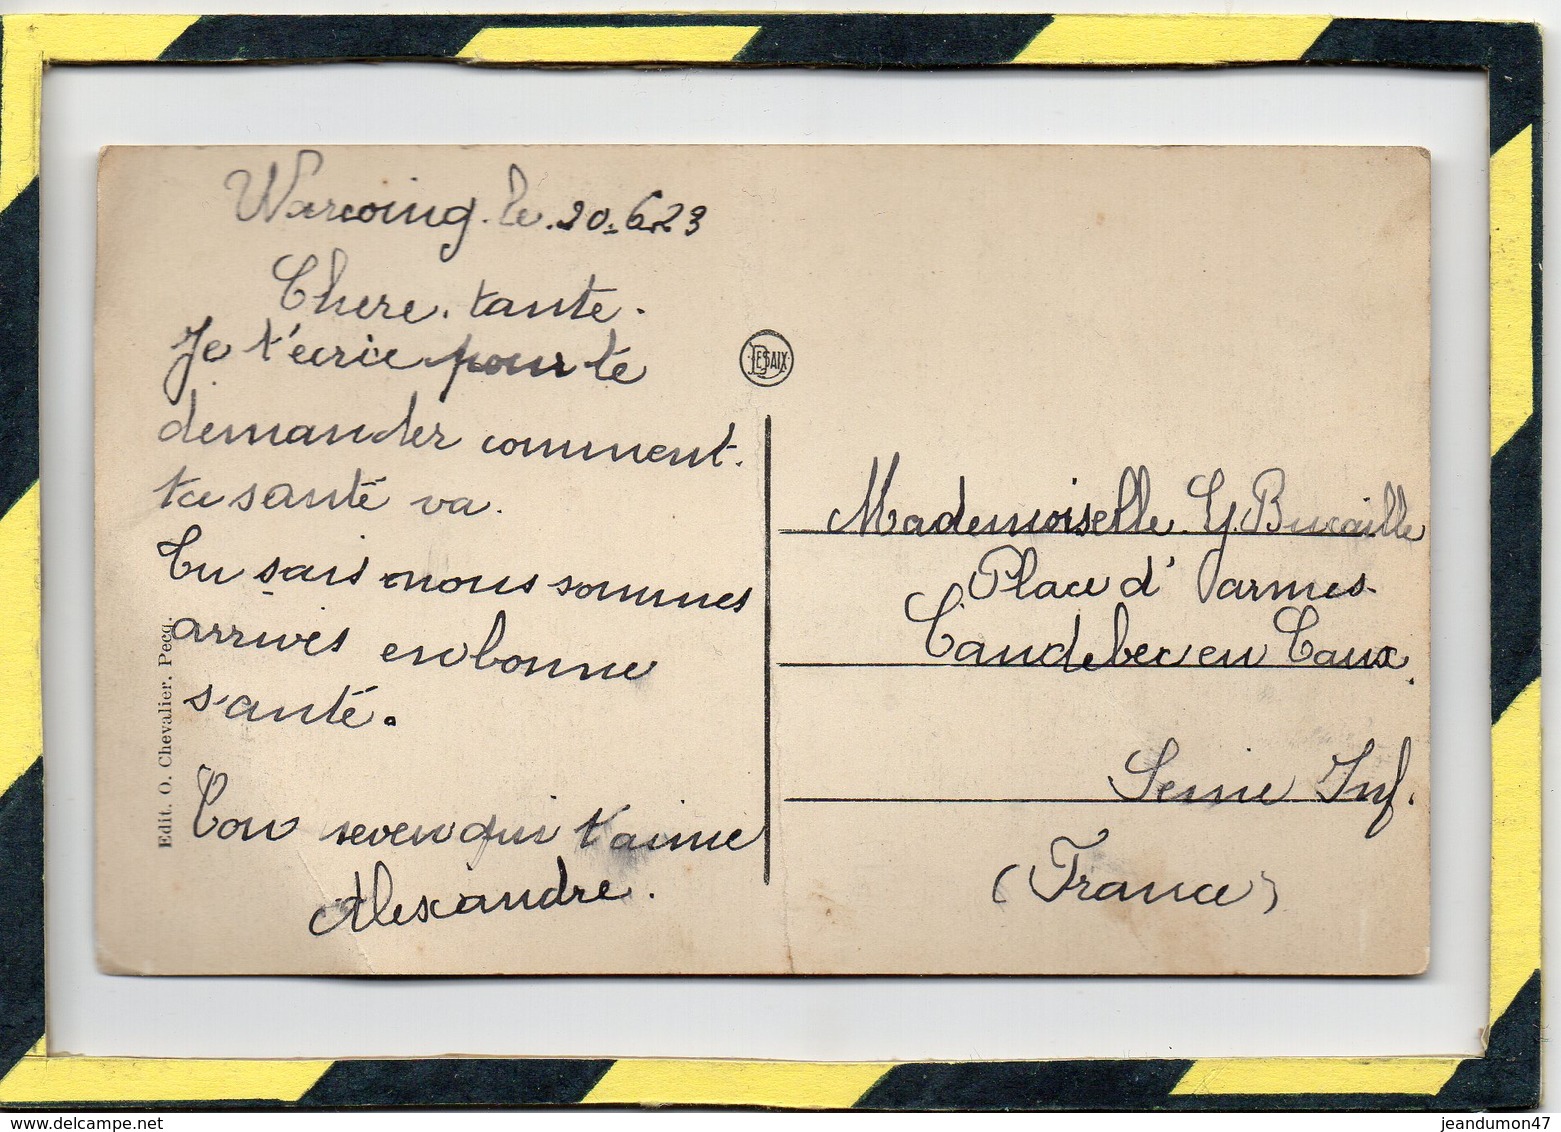 Warcoing. le. 20.6.23
Chere. tante.
Je t'écrie pour te
demander comment.
ta santé va.
Tu sais nous sommes
arrivés en bonne
santé.
Ton neveu qui t'aime
Alexandre.
Edit. O. Chevalier. Pecq.
DESAIX
Mademoiselle G. Bucaille
Place d' armes.
Caudebec en Caux.
Seine Inf.
(France)
delcampe.net
jeandumon47